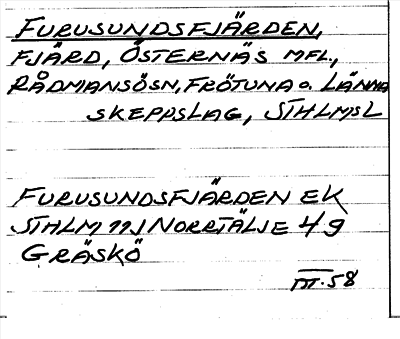 FURUSUNDSFJÄRDEN,
FJÄRD, ÖSTERNÄS MFL.,
RÅDMANSÖSN, FRÖTUNA o. LÄNNA
SKEPPSLAG, STHLMSL
FURUSUNDSFJÄRDEN EK
STHLM 11J NORRTÄLJE 49
GRÄSKÖ
III.58